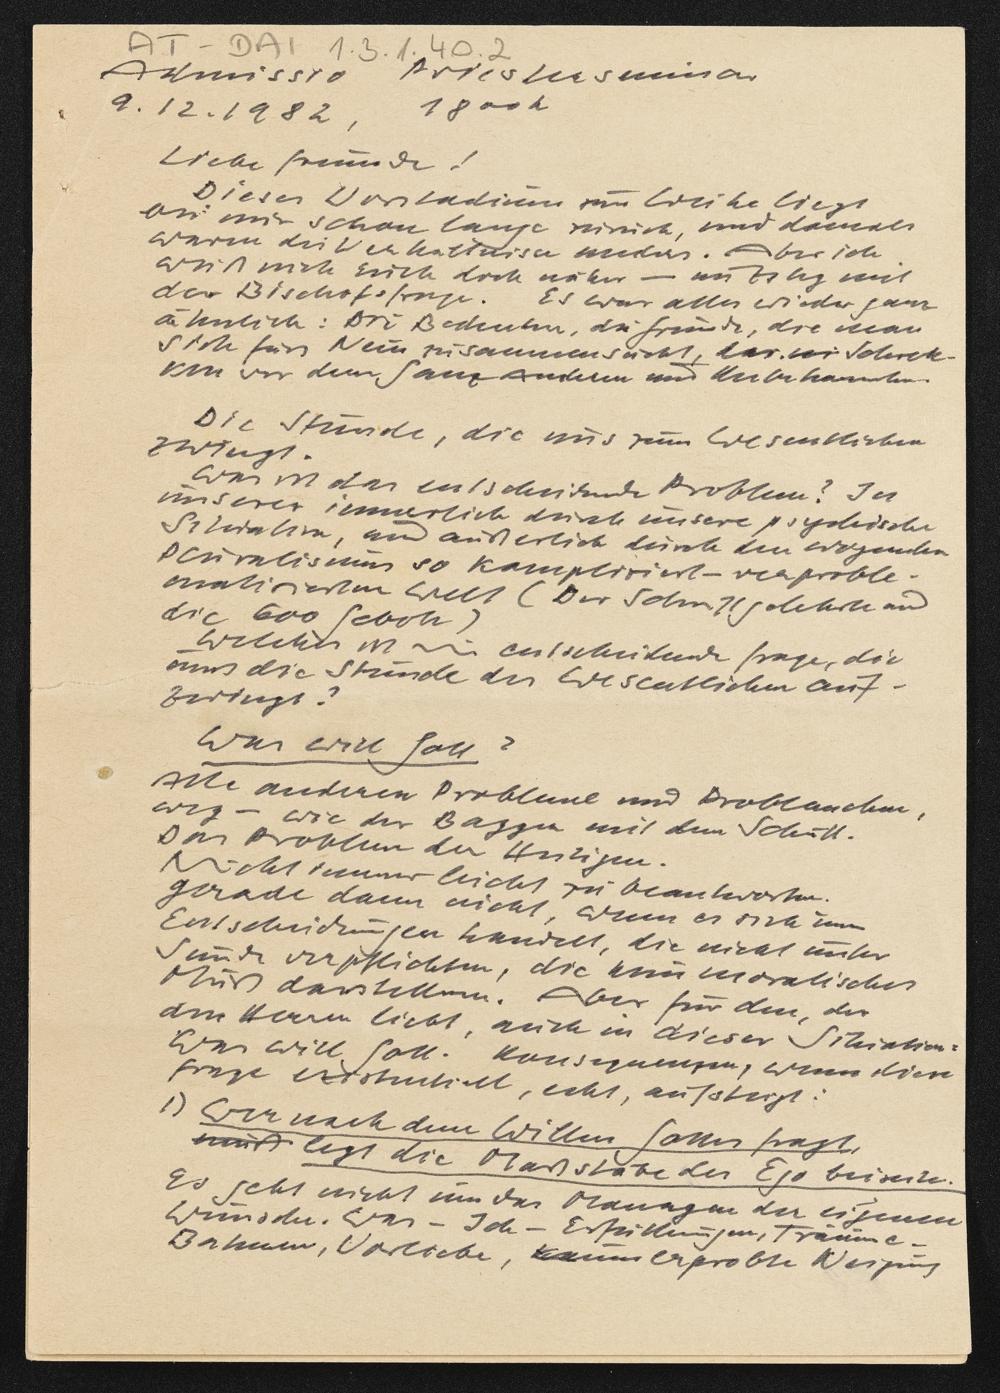 AT-DAI 1.3.1.40.2
Admissio Priesterseminar
9.12.1982, 18ooh
Liebe Freunde!
Dieses Vorstadium zur Weihe liegt
bei mir schon lange zurück, und damals
waren die Verhältnisse anders. Aber ich
weiß mich Euch doch näher —
der Bischofsfrage. Es war alles wieder ganz
ähnlich: Die Bedenken, die Gründe, die man
sich fürs Nein zusammensucht, der Schrek-
ken vor dem Ganz Anderen und Unbekannten.
Die Stunde, die uns zum Wesentlichen
zwingt.
Was ist das entscheidende Problem? In
unserer innerlich durch unsere psychische
Situation, und äußerlich durch den wogenden
Pluralismus so kompliziert - verproble-
matisierten Welt (Der Schriftgelehrte und
die 600 Gebote)
Welches ist die entscheidende Frage, die
uns die Stunde des Wesentlichen auf-
zwingt?
Was will Gott?
Alle anderen Probleme und Problemchen,
weg - wie der Bagger mit dem Schutt.
Das Problem der Heiligen.
Nicht immer leicht zu beantworten.
Gerade dann nicht, wenn es sich um
Entscheidungen handelt, die nicht unter
Sünde verpflichten, die kein moralisches
Muß darstellen. Aber für den, der
den Herrn liebt, auch in dieser Situation:
Was will Gott. Konsequenzen, wenn diese
Frage existentiell, echt, aufsteigt:
1) Wer nach dem Willen Gottes fragt,
muß legt die Maßstäbe des Ego beiseite.
Es geht nicht um das Managen der eigenen
Wünsche. Was - Ich - Erfüllungen, Träume -
Bahnen, Vorliebe, erprobte Neigung